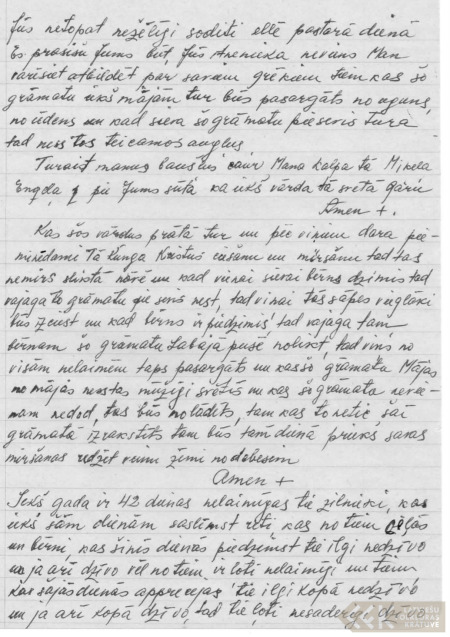 Jūs netopat nežēlīgi sodīti ellē pastarā dienā
Es prasīšu Jums būt Jūs nevienu Man
varēsiet atbildēt par saviem grēkiem tiem kas šo
grāmatu iekš mājām tur būs pasargāts no uguns,
no ūdens un kad sieva šo grāmatu pie sevis turā
tad ness tos teicamos augļus
Turait manus baušļus caur Mana kalpa tā Miķeļa
Enģeļa, pie Jums sūta ka iekš vārda tā svētā gara
Amen +.
Kas šos vārdus prātā tur un pēc viņiem dara pie-
minēdami Tā Kunga Kristus ciešanu un miršanu tad tas
nemirs nāvē un kad vienai sievai bērns dzimis tad
vajaga to grāmatu pie sevis nest, tad viņai tās sāpes vieglaki
būs un kad bērns ir piedzimis, tad vajaga tam
bērnam šo grāmatu Labājā pusē nolikt, tad viņs no
visām nelaimēm taps pasargāts un kas šo grāmatu Mājās
no mājas nesstas mūžīgi svētīts un kas šo grāmatu nevie-
nam nedod, tas būs nolādēts, tam kas to netic, šai
grāmatā izrakstīts tam būs tam dienā priekš savas
miršanas redzēt vienu zīmi no debesem
Amen +
Iekš gada ir 42 dienas nelaimīgas tie zilnieki, kas
iekš šām dienām saslimst reti kas no tiem ceļās
un bērni, kas šinīs dienās piedzimst tie ilgi nedzīvo
un ja arī dzīvo vēl no tiem ir ļoti nelaimīgi un tiem
kas šājās dienās apprecejas tie ilgi kopā nedzīvo
un ja arī kopā dzīvo, tad tie ļoti nesaderīgi dzīvo
LATVIEŠU
FOLKLORAS
KRĀTUVE